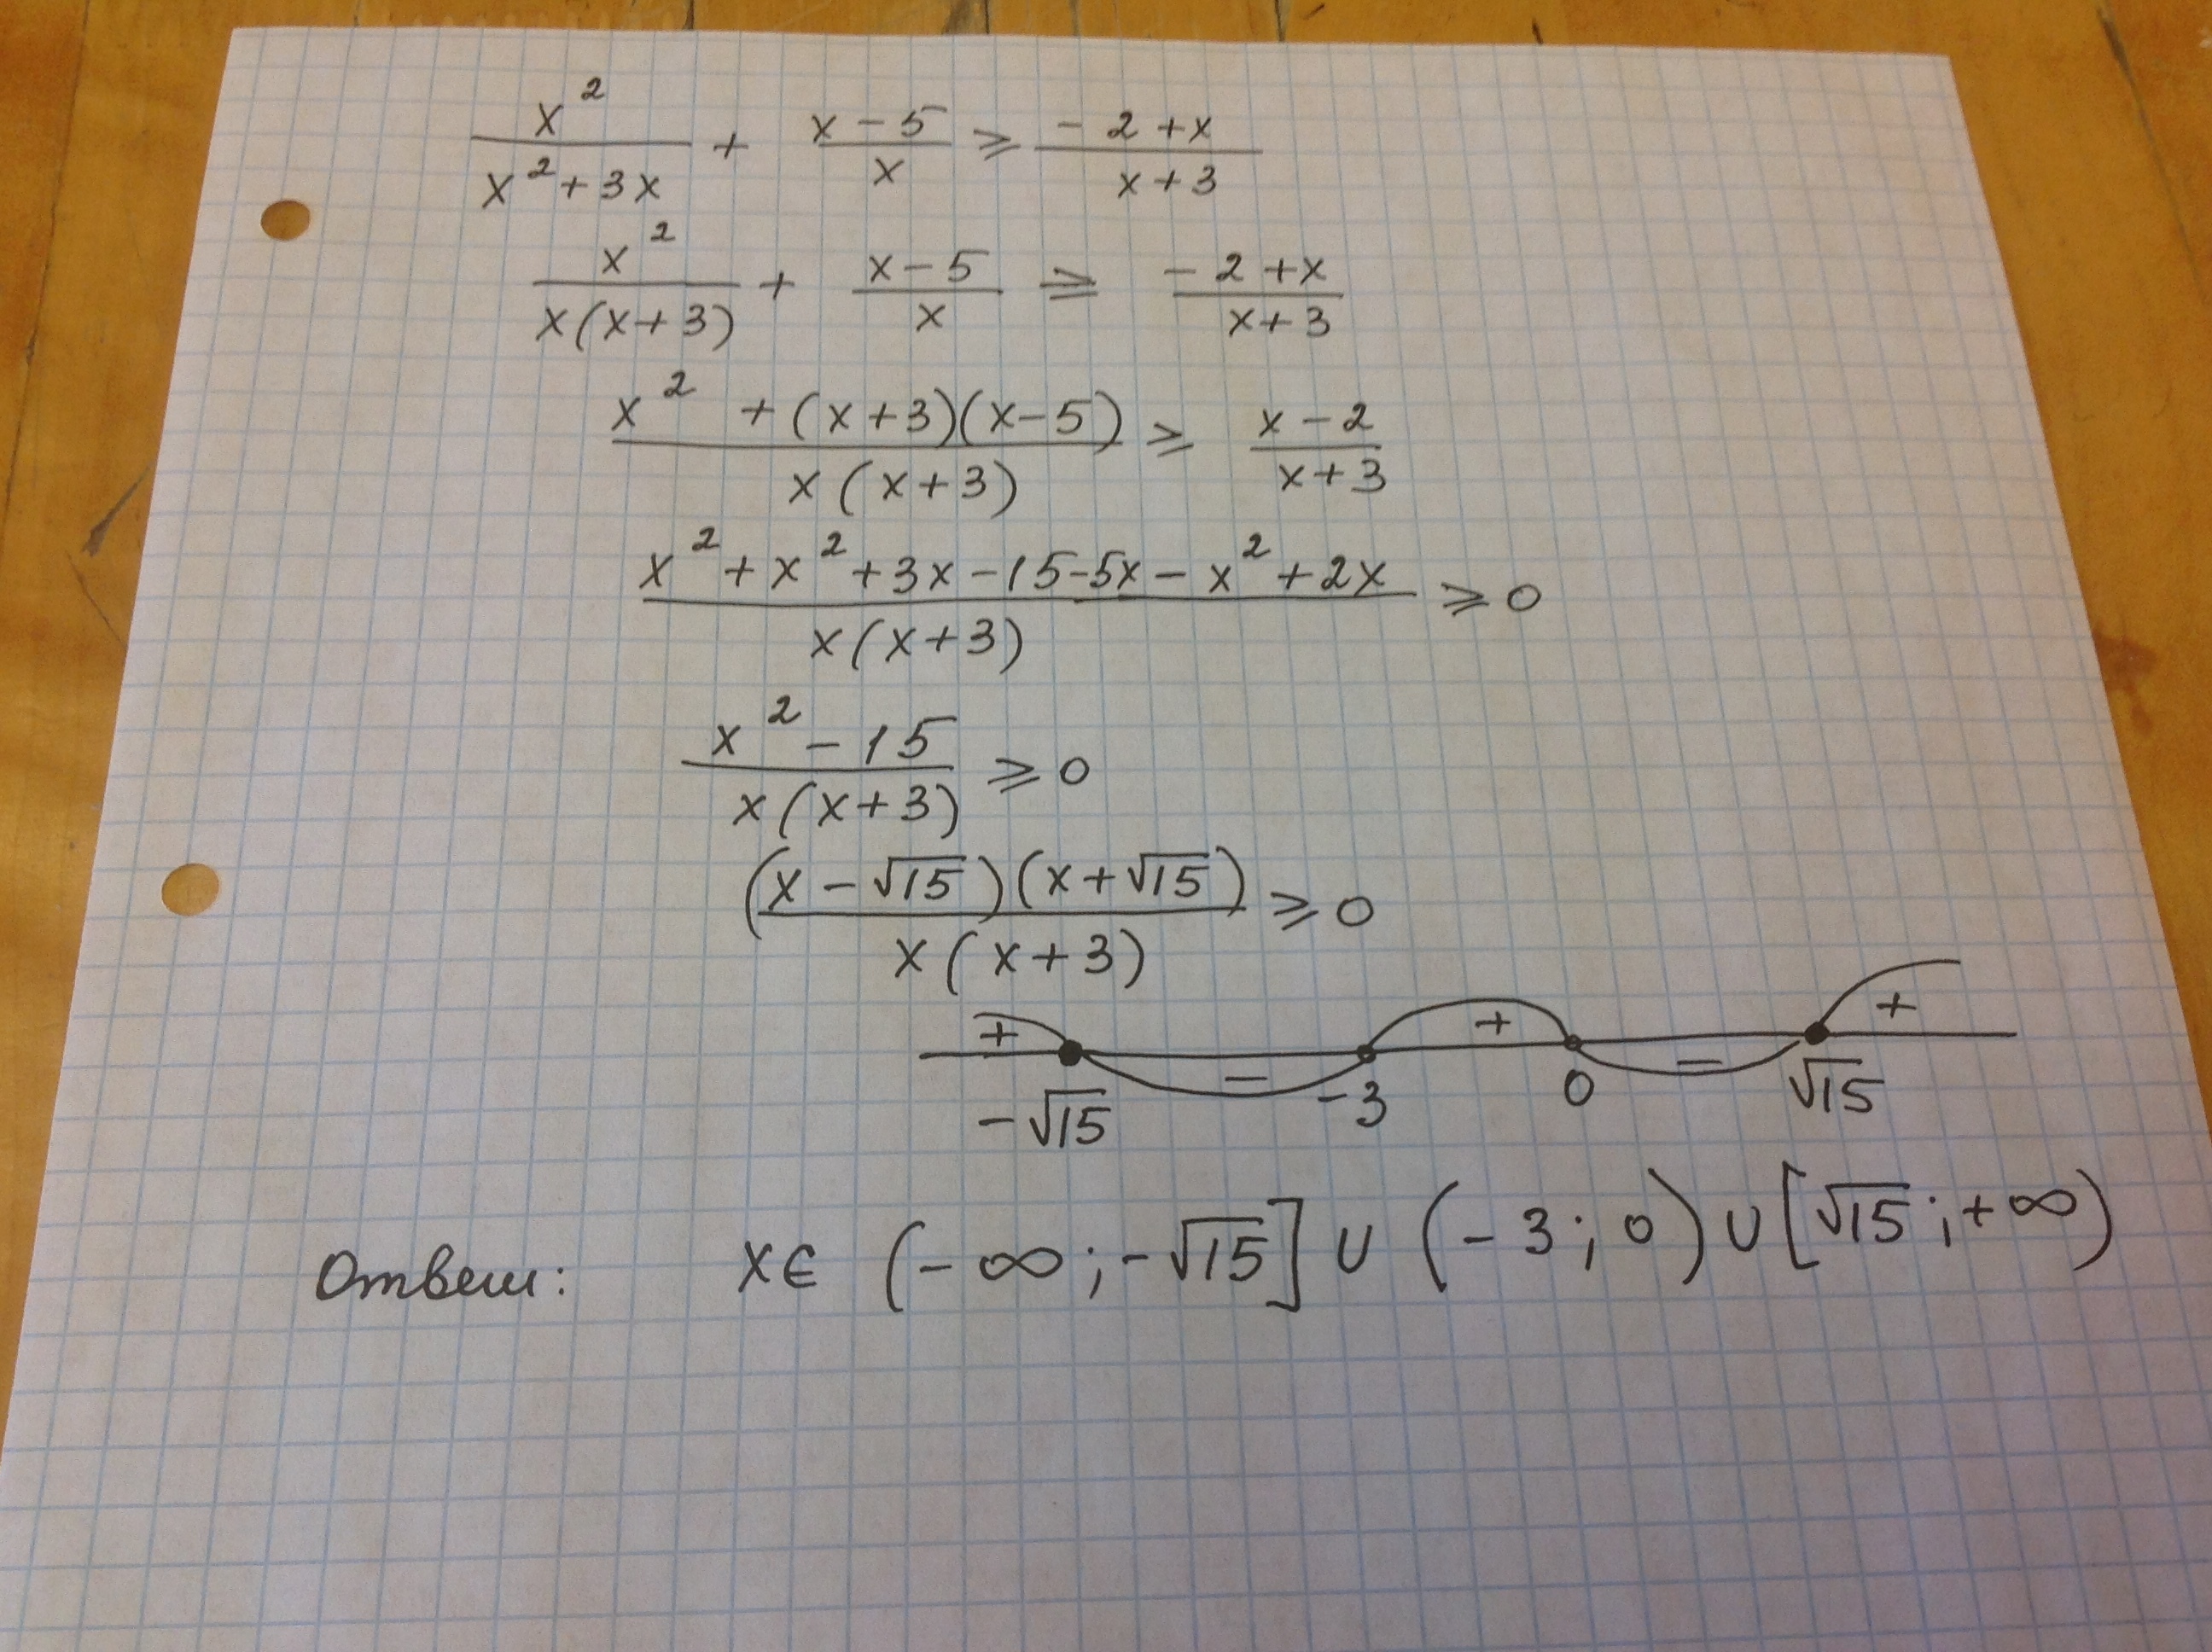 x²/(x²+3x) + (x-5)/x ≥ (-2+x)/(x+3)
x²/(x(x+3)) + (x-5)/x ≥ (-2+x)/(x+3)
(x²+(x+3)(x-5))/(x(x+3)) ≥ (x-2)/(x+3)
(x²+x²+3x-15-5x-x²+2x)/(x(x+3)) ≥ 0
(x²-15)/(x(x+3)) ≥ 0
((x-√15)(x+√15))/(x(x+3)) ≥ 0
+ - + - +
-√15 -3 0 √15
Ответ: x∈ (-∞;-√15]∪(-3;0)∪[√15;+∞)